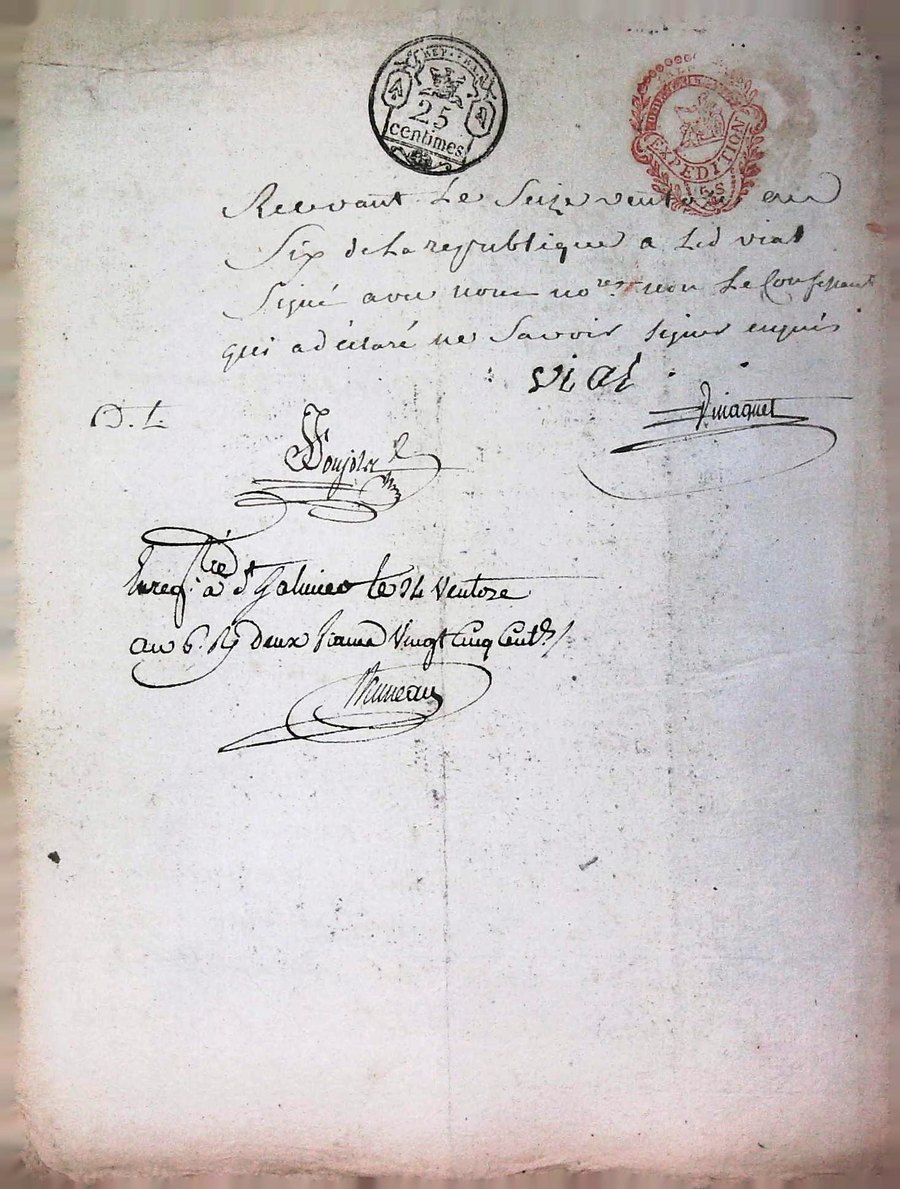 REP. FRA.
25
centimes
EXPEDITION
Recevant Le Seize ventose an
Six de La republique a Led vial
Signé avec nous no.res non Le Confessant
qui a déclaré ne Savoir signer enquis
vial
D. L.
Enreg.tré à S.t Galmier le 24 Ventose
au 6. R/ deux francs Vingt Cinq Cent.s/